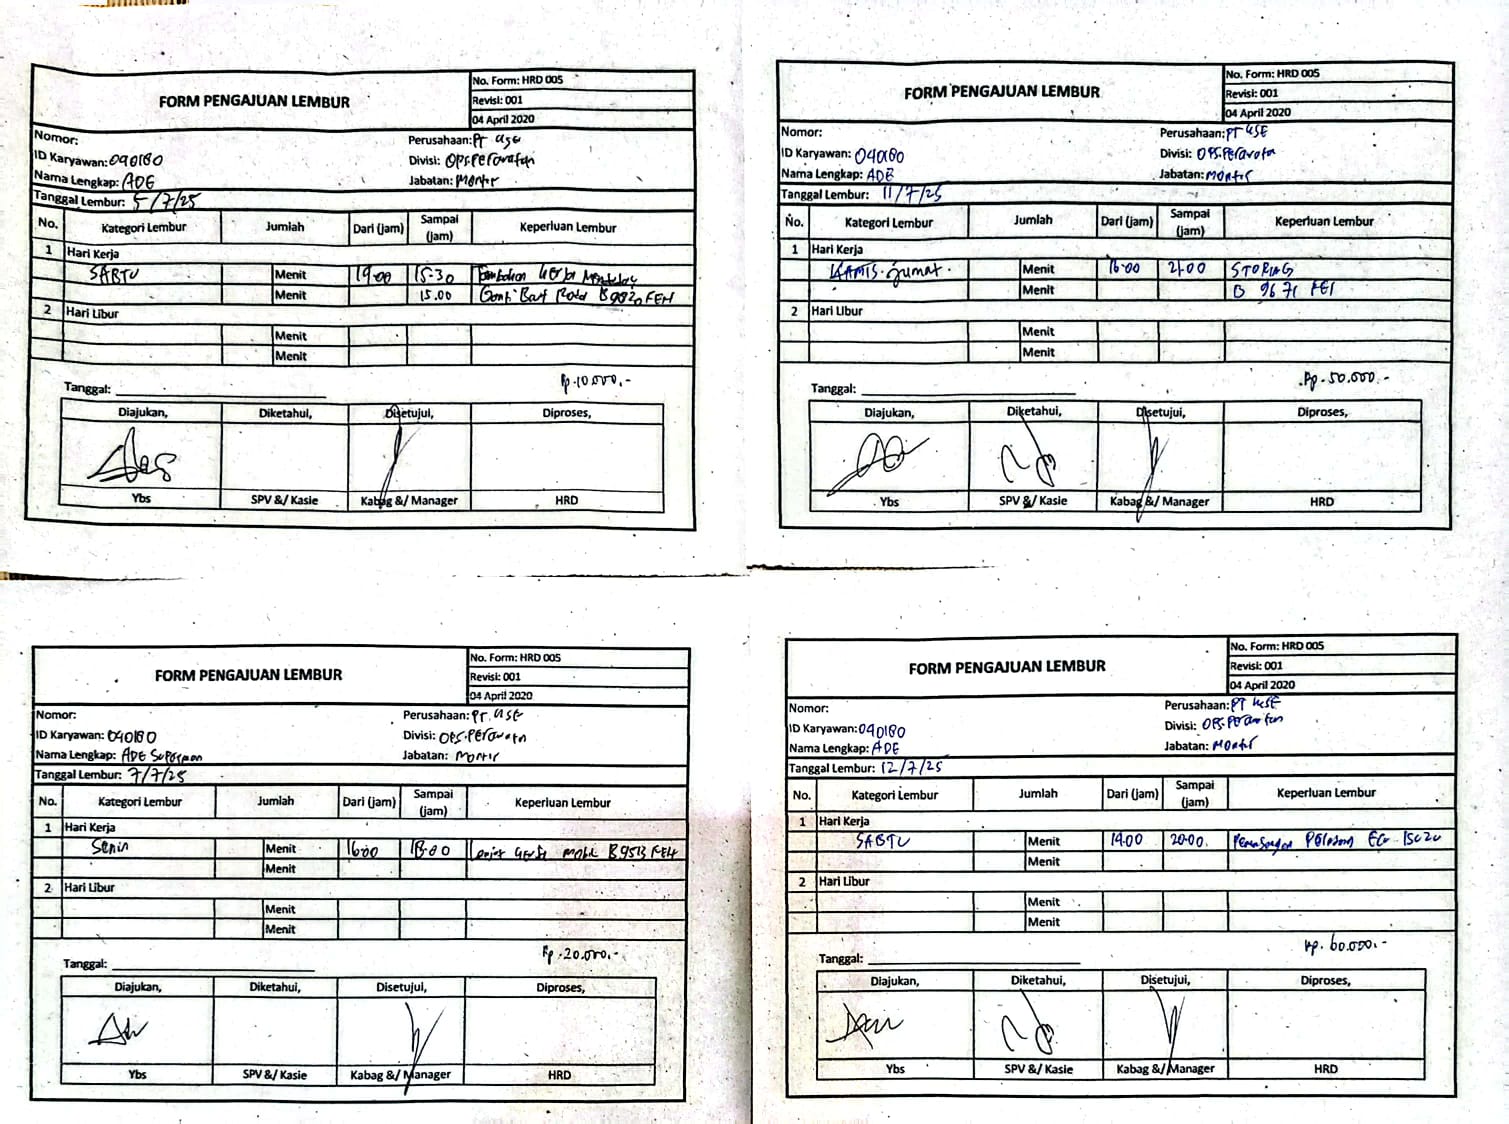 FORM PENGAJUAN LEMBUR
No. Form: HRD 005
Revisi: 001
04 April 2020
Nomor:
Perusahaan: PT USE
ID Karyawan: 040180
Divisi: OPS.Perawatan
Nama Lengkap: ADE
Jabatan: Montir
Tanggal Lembur: 5/7/25
No. Kategori Lembur Jumlah Dari (jam) Sampai (jam) Keperluan Lembur
1 Hari Kerja
SABTU Menit 15.30
Menit 15.00 Ganti Ban B 9820 FEH
2 Hari Libur
Menit
Menit
Rp.10.000.-
Tanggal:
Diajukan, Diketahui, Disetujui, Diproses,
Ybs SPV &/ Kasie Kabag &/ Manager HRD
FORM PENGAJUAN LEMBUR
No. Form: HRD 005
Revisi: 001
04 April 2020
Nomor:
Perusahaan: PT USE
ID Karyawan: 040180
Divisi: OPS.Perawatan
Nama Lengkap: ADE
Jabatan: Montir
Tanggal Lembur: 11/7/25
No. Kategori Lembur Jumlah Dari (jam) Sampai (jam) Keperluan Lembur
1 Hari Kerja
Jumat. Menit 16.00 21.00 STORING
Menit B 9671 FEI
2 Hari Libur
Menit
Menit
Rp. 50.000.-
Tanggal:
Diajukan, Diketahui, Disetujui, Diproses,
Ybs SPV &/ Kasie Kabag &/ Manager HRD
FORM PENGAJUAN LEMBUR
No. Form: HRD 005
Revisi: 001
04 April 2020
Nomor:
Perusahaan: PT. USE
ID Karyawan: 040180
Divisi: OPS.Perawatan
Nama Lengkap: ADE Suparman
Jabatan: Montir
Tanggal Lembur: 7/7/25
No. Kategori Lembur Jumlah Dari (jam) Sampai (jam) Keperluan Lembur
1 Hari Kerja
Senin Menit 16.00 18.00 mobil B 9513 FEH
Menit
2 Hari Libur
Menit
Menit
Rp.20.000.-
Tanggal:
Diajukan, Diketahui, Disetujui, Diproses,
Ybs SPV &/ Kasie Kabag &/ Manager HRD
FORM PENGAJUAN LEMBUR
No. Form: HRD 005
Revisi: 001
04 April 2020
Nomor:
Perusahaan: PT USE
ID Karyawan: 040180
Divisi: OPS.Perawatan
Nama Lengkap: ADE
Jabatan: Montir
Tanggal Lembur: 12/7/25
No. Kategori Lembur Jumlah Dari (jam) Sampai (jam) Keperluan Lembur
1 Hari Kerja
SABTU Menit 14.00 20.00.
Menit
2 Hari Libur
Menit
Menit
Rp. 60.000.-
Tanggal:
Diajukan, Diketahui, Disetujui, Diproses,
Ybs SPV &/ Kasie Kabag &/ Manager HRD